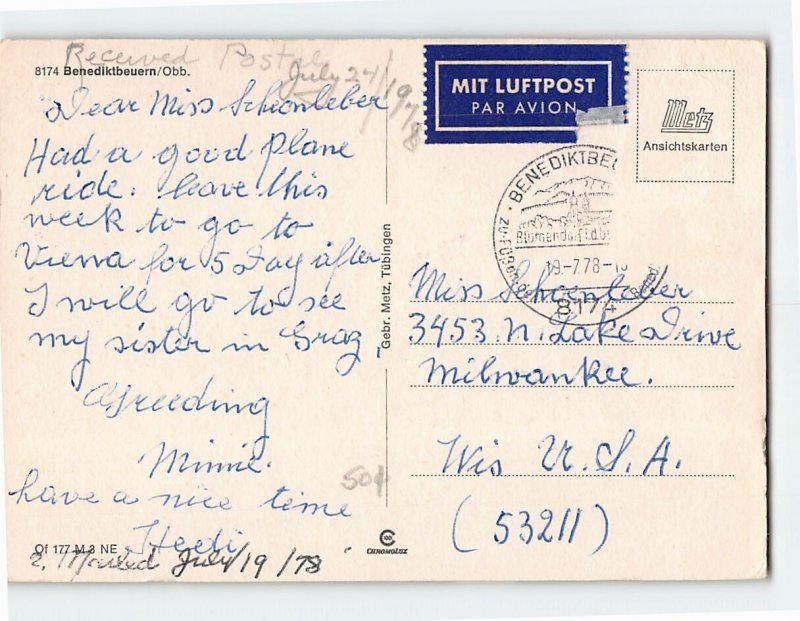 Received Postal
July 24/1978
8174 Benediktbeuern/Obb.
Dear Miss Schoenleber
Had a good plane
ride. leave this
week to go to
Vienna for 5 Day after
I will go to see
my sister in Graz
Greeding
Minnie.
have a nice time
Hedi
Of 177 M 3 NE
2. Mailed July/19/78
Gebr. Metz, Tübingen
50¢
CHROMOLUX
MIT LUFTPOST
PAR AVION
Metz
Ansichtskarten
BENEDIKTBE
Blumendorf
19.-7.78-1
8174
Miss Schoenleber
3453. N. Lake Drive
Milwaukee.
Wis U.S.A.
(53211)